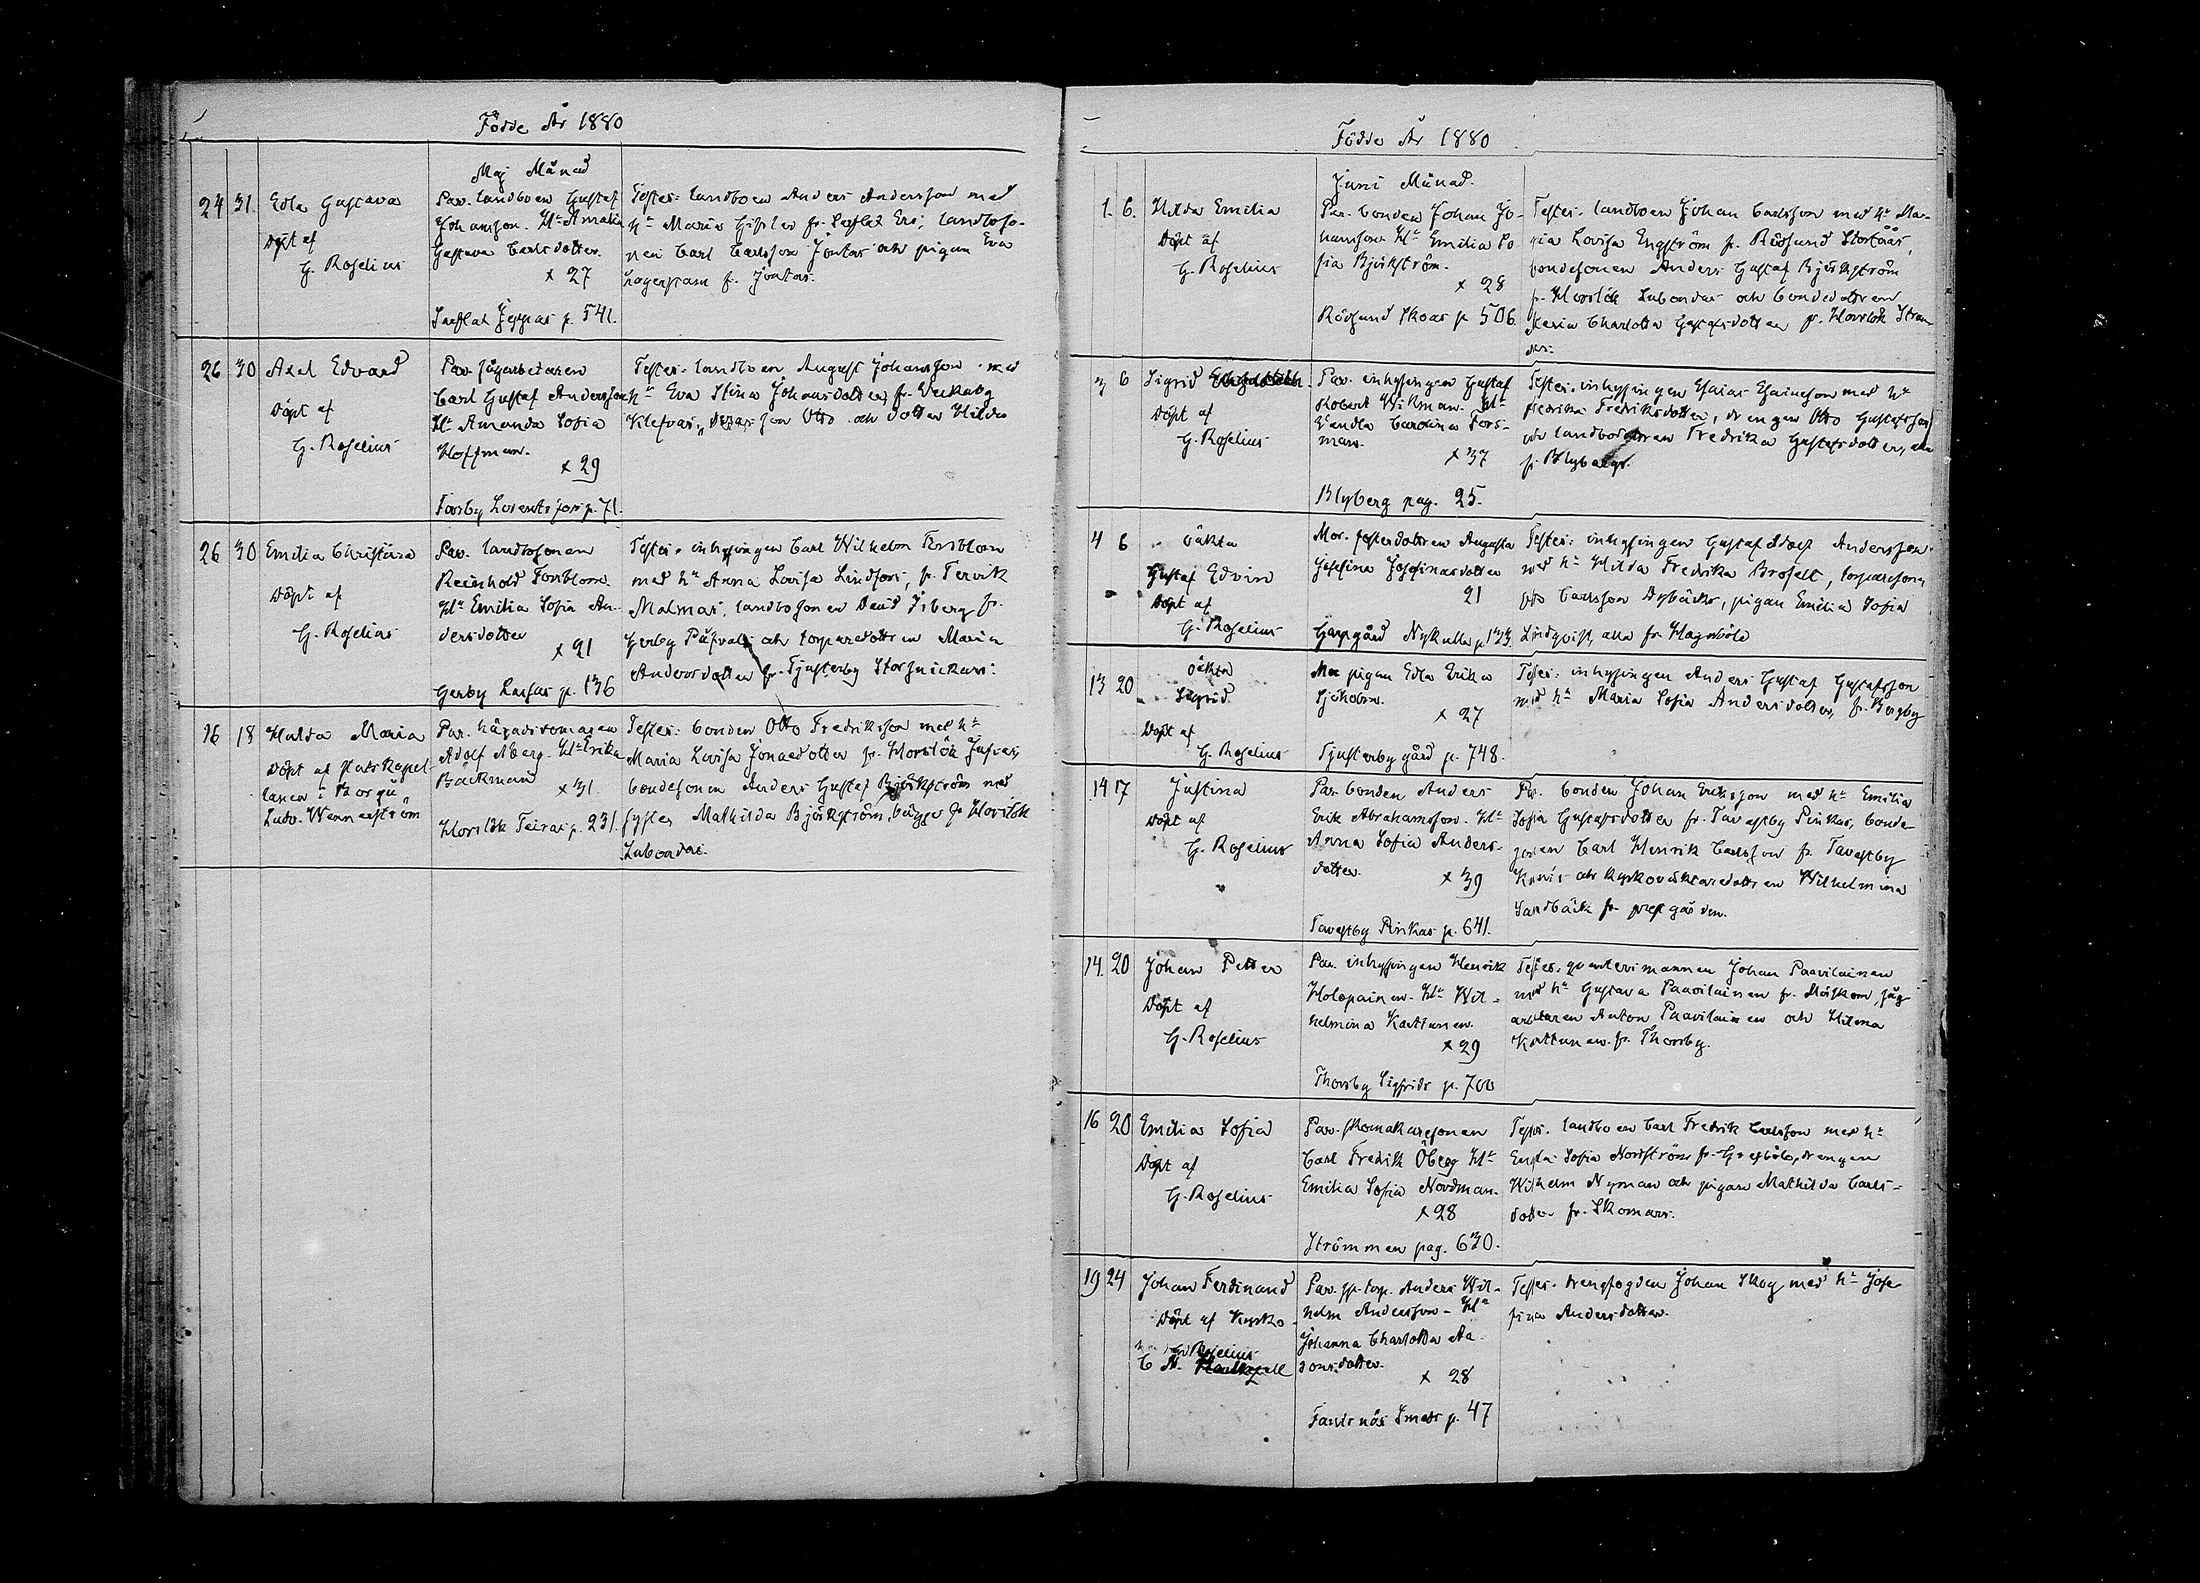 Födde År 1880
Maj Månad
24 31. Edla Gustava
Döpt af
G. Roselius
Par. landboen Gustaf
Johansson. H:u Amalia
Gustava Carlsdotter.
x 27
Jeppas p. 541.
Testes: landboen Anders Andersson med
h:u Maria fr. landboso-
nen Carl Carlsson Jontas och pigan Eva
Lagerstam fr. Jontas.
26 30 Axel Edvard
Döpt af
G. Roselius
Par. sågarbetaren
Carl Gustaf Andersson
H:u Amanda Sofia
Hoffman.
x 29
Forsby p. 71.
Testes: landboen August Johansson med
h:u Eva Stina Johansdotter fr.
deras son Otto och dotter Hilda
26 30 Emilia Christina
Döpt af
G. Roselius
Par. landbosonen
Reinhold Forsblom.
H:u Emilia Sofia An-
dersdotter
x 21
Gerby p. 136
Testes: inhysingen Carl Wilhelm Forsblom
med h:u Anna Lovisa Lindfors, fr. Tervik
Malmas, landbosonen David Isberg fr.
Gerby och torparedottren Maria
Andersdotter fr. Tjusterby Storsnickars.
16 18 Hulda Maria
Döpt af
i Borgå
Ludv. Wennerström
Par. häradsdomaren
Adolf Åberg. H:u Erika
Bäckman
x 31.
Horslök Teiras p. 231.
Testes: bonden Otto Fredriksson med h:u
Maria Lovisa Jonaedotter fr. Horslök
bondesonen Anders Gustaf Björkström med
syster Mathilda Björkström, begge fr. Horslök
Labondas.
Födde År 1880
Juni Månad.
1. 6. Hilda Emilia
Döpt af
G. Roselius
Par. bonden Johan Jo-
hansson H:u Emilia So-
fia Björkström.
x 28
Rödsund Skoas p 506.
Testes. landboen Johan Carlsson med h:u Ma-
ria Lovisa Engström fr. Rödsund
bondesonen Anders Gustaf Björkström
fr. Horslök Labondas och bondedottren
Maria Charlotta Gustafsdotter fr. Horslök Stran-
3 6 Sigrid
Döpt af
G. Roselius
Par. inhysingen Gustaf
Robert Wikman. H:u
Wendla Carolina Fors-
man.
x 37
Blyberg pag. 25.
Testes. inhysingen Esaias Esaiesson med h:u
Fredrika Fredriksdotter, drengen Otto Gustafsson
och Fredrika Gustafsdotter, alla
fr. Blyberg.
4 6 oäkta
Gustaf Edvin
Döpt af
G. Roselius
Mor. Augusta
Josefina Josefinasdotter
21
Nykulla p. 133.
Testes: inhysingen Gustaf Adolf Andersson
med h:u Hilda Fredrika
Otto Carlsson pigan Emilia Sofia
Lindqvist, alla fr. Hagnböle
13 20 oäkta
Sigrid
Döpt af
G. Roselius
Mor pigan Edla Erika
Sjöholm.
x 27
Tjusterby gård p. 748.
Testes: inhysingen Anders Gustaf Gustafsson
med h:u Maria Sofia Andersdotter, fr. Bergby
14 17 Justina
Döpt af
G. Roselius
Par. bonden Anders
Erik Abrahamsson. H:u
Anna Sofia Anders-
dotter.
x 39
Tavastby Pinkas p. 641.
Par. bonden Johan Eriksson med h:u Emilia
Sofia Gustafsdotter fr. Tavastby Pinkas, bonde-
sonen Carl Henrik Carlsson fr. Tavastby
och kyrkovaktaredottren Wilhelmina
Sandbäck fr. prestgården.
14. 20 Johan Petter
Döpt af
G. Roselius
Par. inhysingen Henrik
Holopainen. H:u Wil-
helmina Karttunen.
x 29
Thorsby Sigfrids p. 700
Testes. Johan Paavilainen
med h:u Gustava Paavilainen fr. såg-
arbetaren Anton Paavilainen och Hilma
Karttunen. fr. Thorsby.
16 20 Emilia Sofia
Döpt af
G. Roselius
Par. skomakaresonen
Carl Fredrik Öberg H:u
Emilia Sofia Nordman.
x 28
Strömmen pag. 630.
Testes. landboen Carl Fredrik Carlsson med h:u
Sofia Nordström fr. drengen
Wilhelm Nyman och pigan Mathilda Carls-
dotter fr. Skomars.
19 24 Johan Ferdinand
Döpt af Kyrko-
Roselius
Par. sp. torp. Anders Wil-
helm Andersson. H:u
Johanna Charlotta Aa-
ronsdotter.
x 28
Fantsnäs Smeds p. 47
Testes. drengfogden Johan Skog med h:u Jose-
fina Andersdotter.